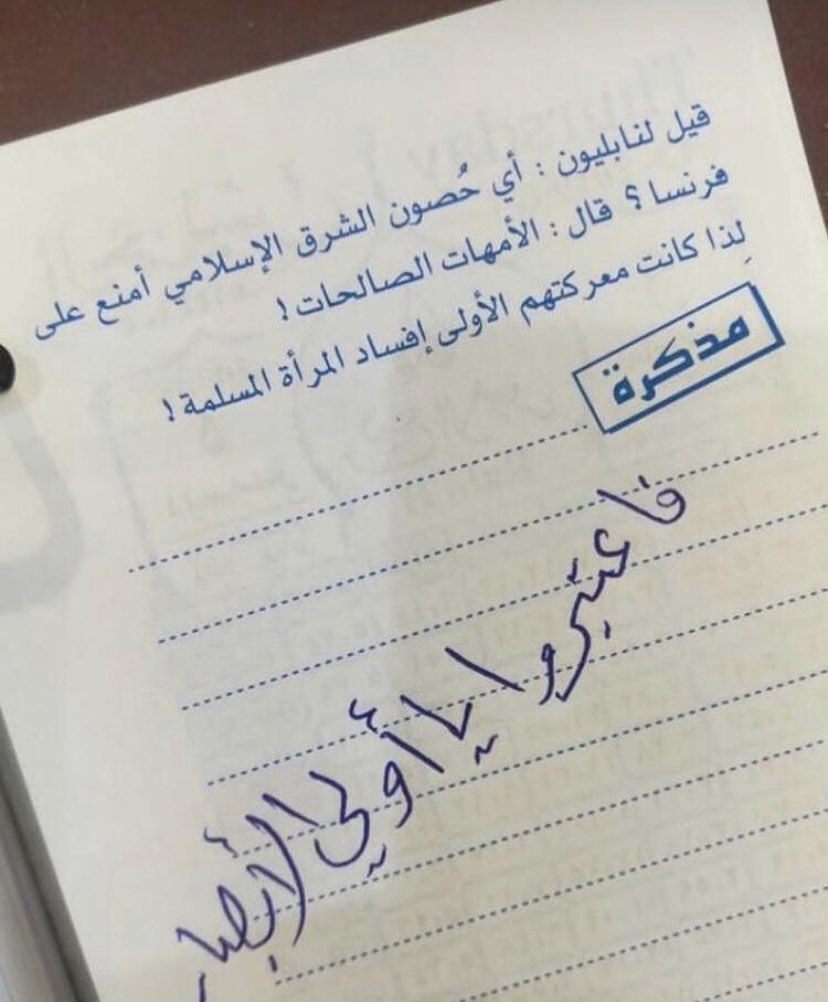 قيل لنابليون : أي حُصون الشرق الإسلامي أمنع على
فرنسا ؟ قال : الأمهات الصالحات !
لِذا كانت معركتهم الأولى إفساد المرأة المسلمة !
مذكرة
فاعتبروا يا أولي الأبصار